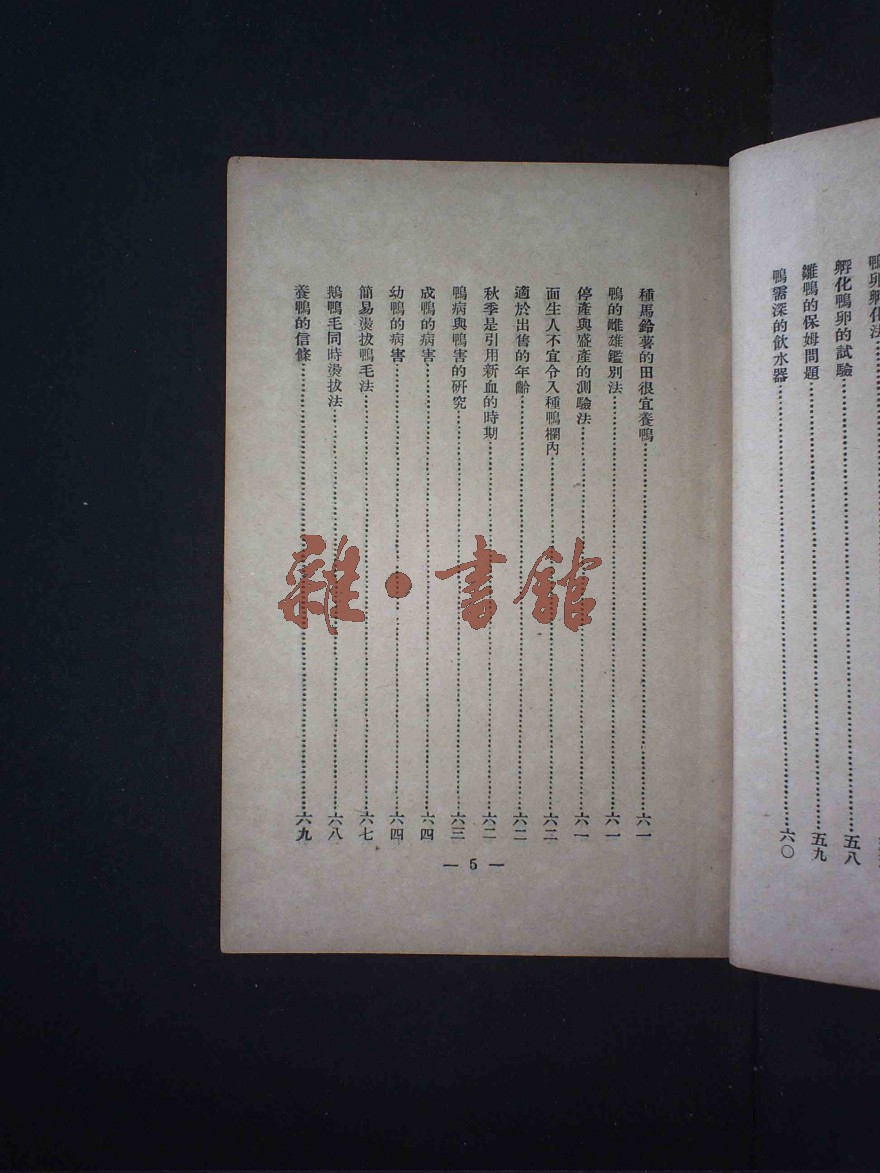 鴨卵孵化法
孵化鴨卵的試驗……五八
雛鴨的保姆問題……五九
鴨需深的飲水器……六〇
種馬鈴薯的田很宜養鴨……六一
鴨的雌雄鑑別法……六一
停產與盛產的測驗法……六一
面生人不宜令入種鴨欄內……六二
適於出售的年齡……六二
秋季是引用新血的時期……六二
鴨病與鴨害的研究……六三
成鴨的病害……六四
幼鴨的病害……六四
簡易燙拔鴨毛法……六七
鵝鴨毛同時燙拔法……六八
養鴨的信條……六九
— 5 —
雜·書館